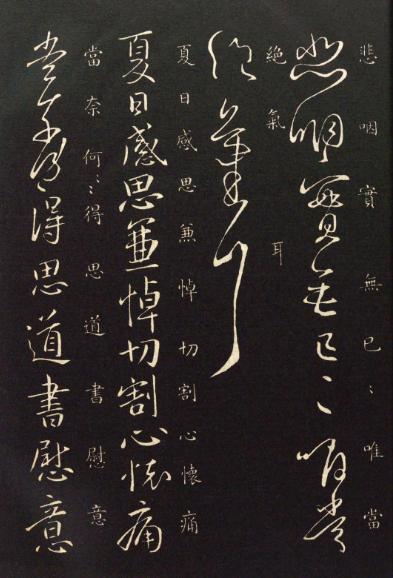 悲咽實無已〻唯當
悲咽實無已〻唯當
絕氣耳
絕氣耳
夏日感思兼悼切割心懷痛
夏日感思兼悼切割心懷痛
當奈何〻得思道書慰意
當奈何〻得思道書慰意